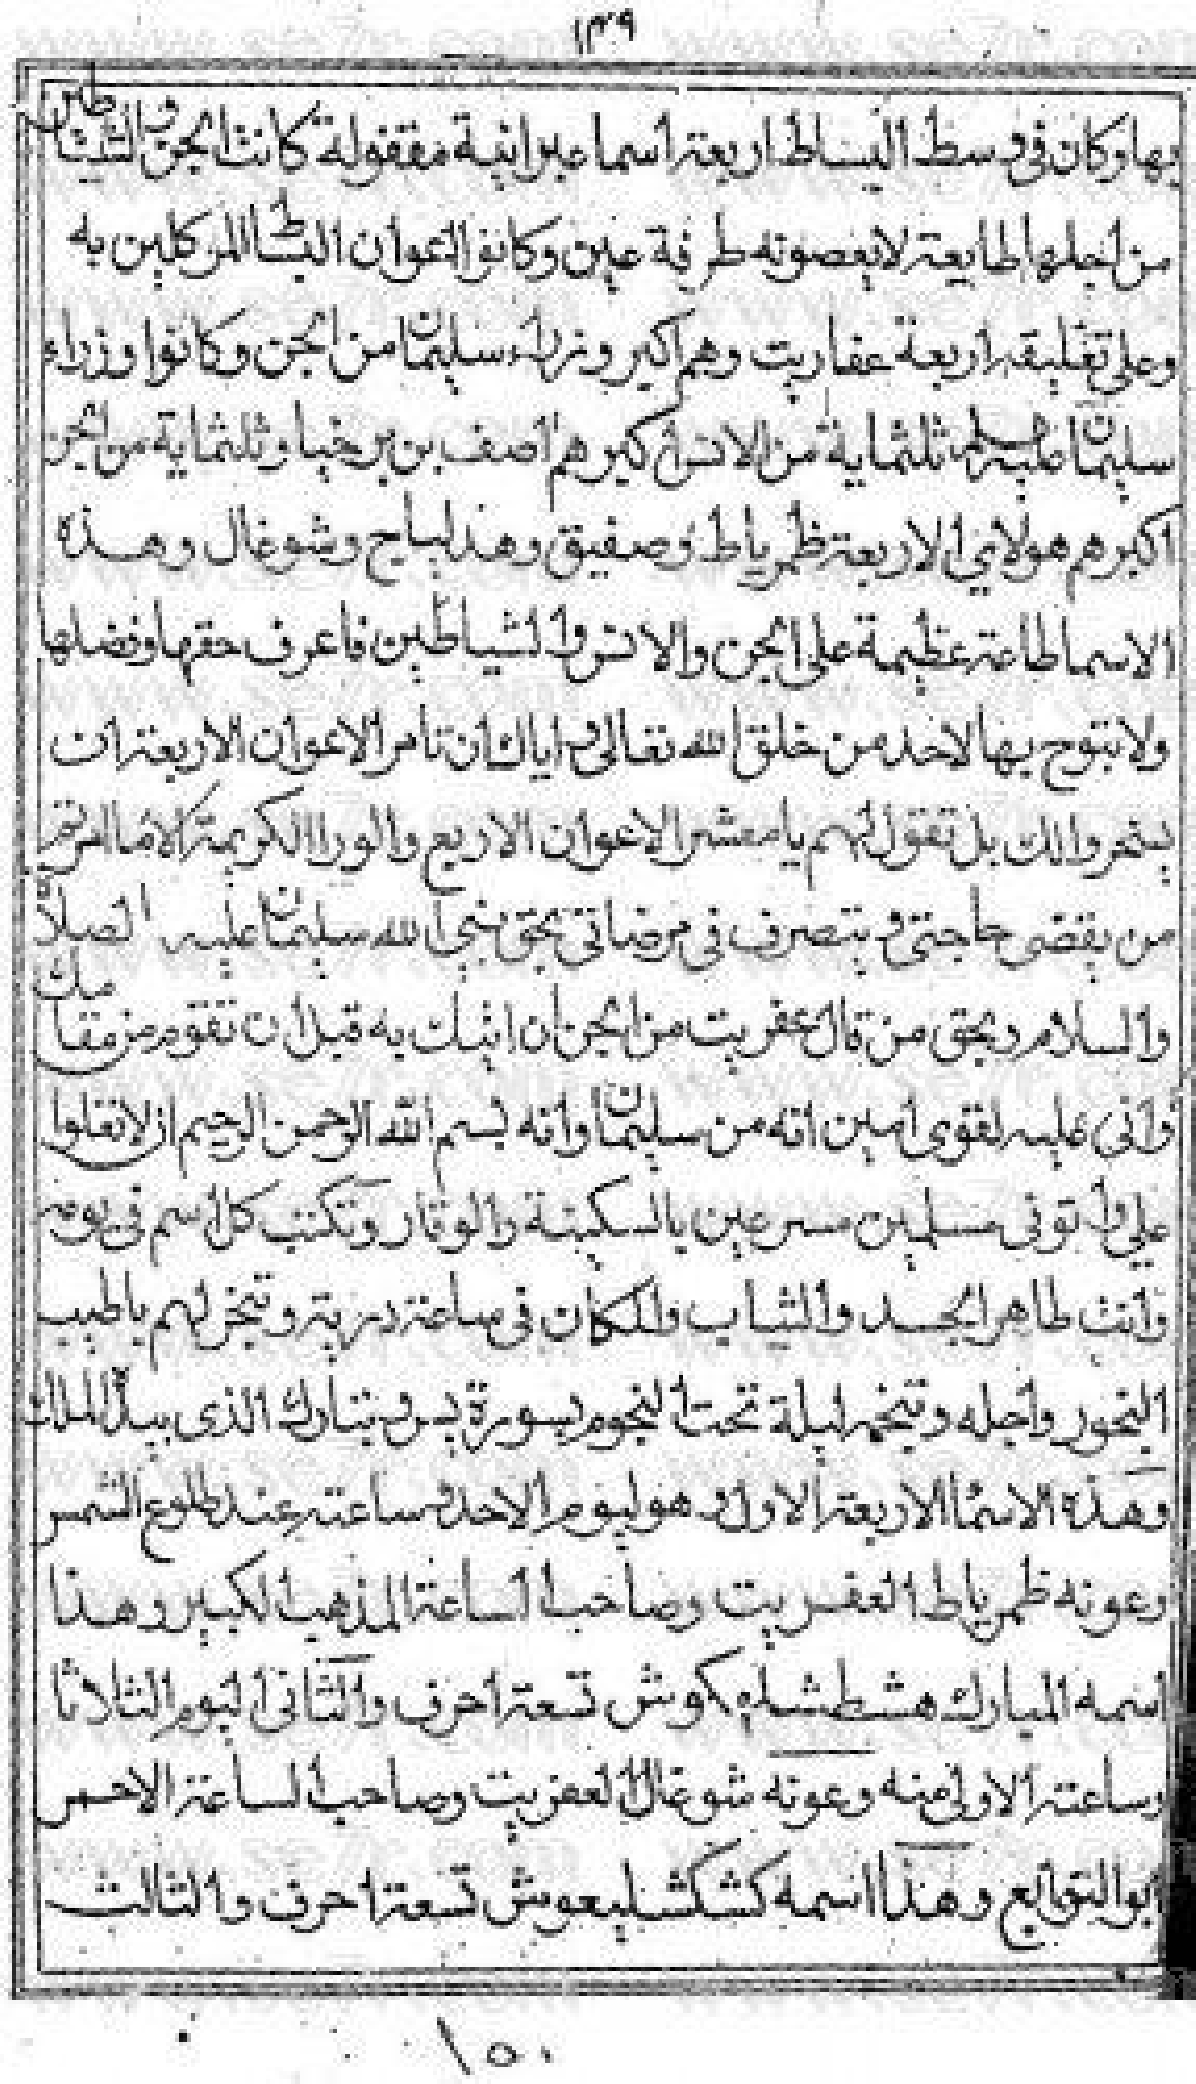 ١٤٩
بها وكان فى وسط البساط اربعة اسما عبرانية مقفولة كانت الجن والشياطين
من اجلها طايعة لا يعصونه طرفة عين وكانوا الاعوان البساط الموكلين به
وعلى تغليقه اربعة عفاريت وهم اكبر وزراء سليمان من الجن وكانوا وزراء
سليمان عليه ثلثماية من الانس اكبرهم اصف بن برخيا وثلثماية من الجن
اكبرهم هولاي الاربعة طمرياط وصفيق وهدلباج وشوغال وهذه
الاسما طاعة عظيمة على الجن والانس والشياطين فاعرف حقها وفضلها
ولا تبوح بها لاحد من خلق الله تعالى واياك ان تامر الاعوان الاربعة ان
بل تقول لهم يا معشر الاعوان الاربع والوزرا الكريمة الا ما امرتم
من يقضى حاجتى ويتصرف فى مرضاتى بحق نبى الله سليمان عليه الصلاة
والسلام وبحق من قال عفريت من الجن ان اتيك به قبل ان تقوم من مقامك
وانى عليه لقوى امين انه من سليمان وانه بسم الله الرحمن الرحيم ان لا تعلوا
على واتونى مسلمين مسرعين بالسكينة والوقار وتكتب كل اسم فى يومه
وانت طاهر الجسد والثياب والمكان فى ساعته وتبخر لهم باطيب
البخور واجله وتنجمه ليلة تحت النجوم بسورة يس وتبارك الذى بيده الملك
وهذه الاسما الاربعة الاول هو ليوم الاحد وساعته عند طلوع الشمس
وعونه طمرياط العفريت وصاحب الساعة المذهب الكبير وهذا
اسمه المبارك تسعة احرف والثانى ليوم الثلاثا
وساعته الاولى منه وعونه شوغال العفريت وصاحب الساعة الاحمر
ابو التوابع وهذا اسمه كشكشليعوش تسعة احرف والثالث
١٥٠